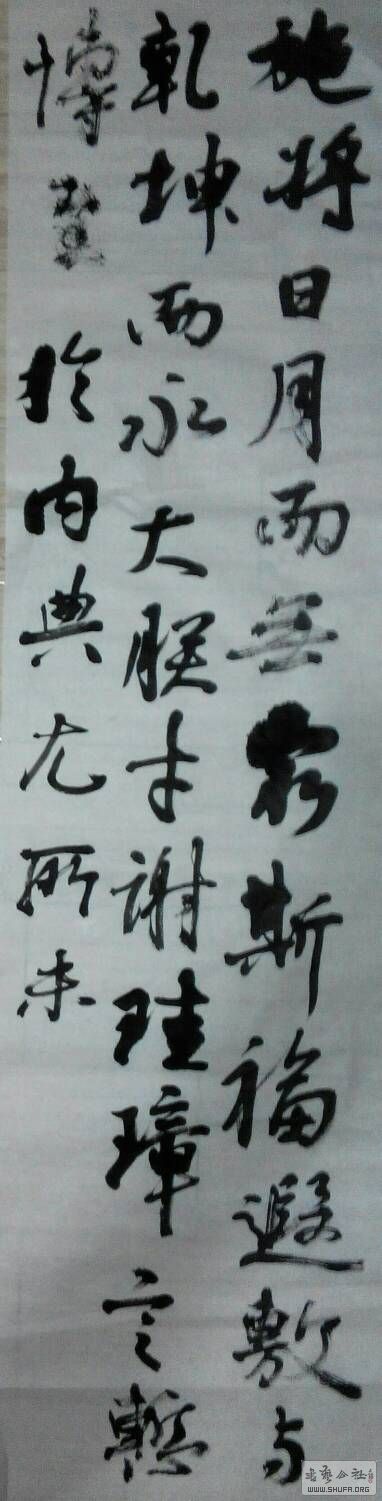 施將日月而無窮斯福遐敷与
乾坤而永大朕才謝珪璋言慙
博於内典尤所未
书艺公社
WWW.SHUFA.ORG